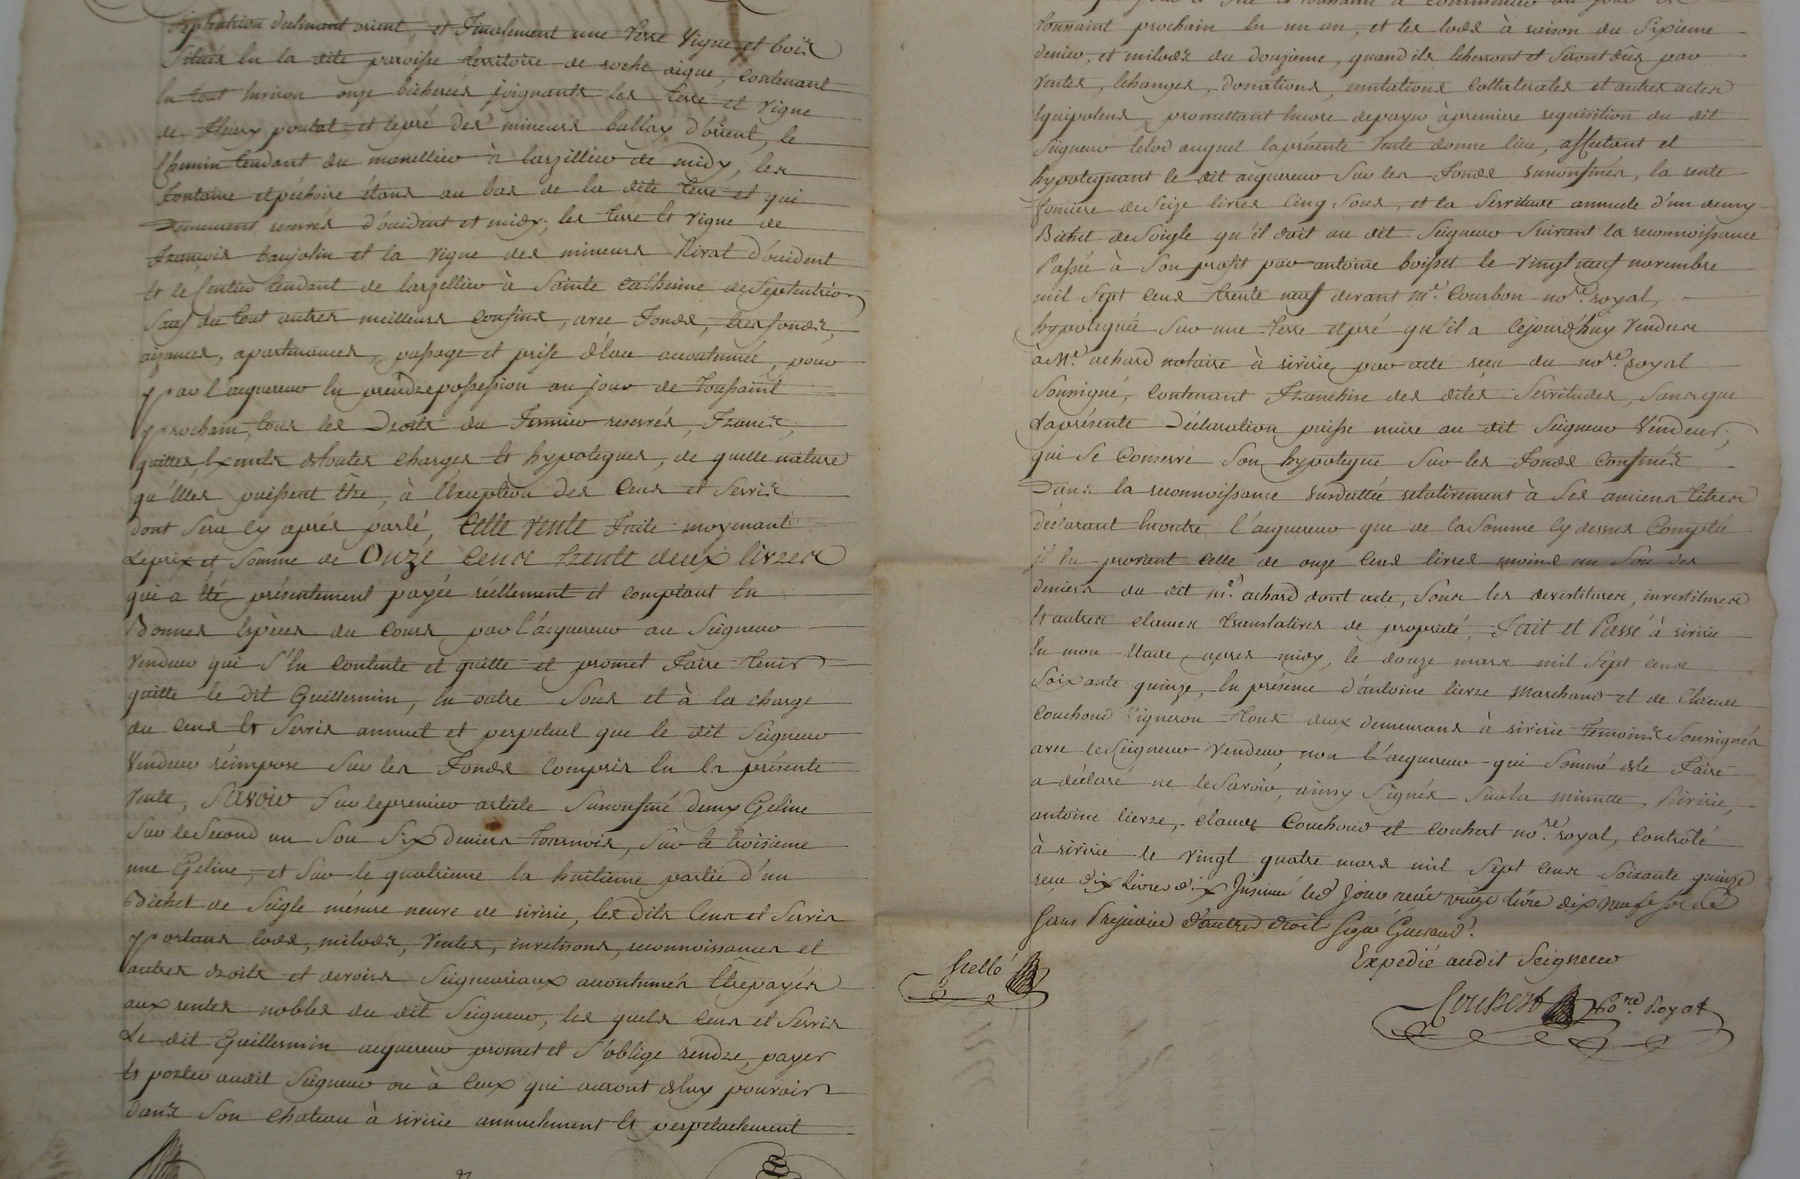 Septentrion declinant orient, et Finalement une Terre Vigne et bois
Situés En la dite paroisse territoire de roche aigue, Contenant
En tout Environ onze bicherées joignants les terre et vigne
de Fleury poulat, et le pré des mineurs ballay d'orient, le
Chemin tendant du monellieu à larzillieu de midy, les
fontaine et péchoire étans au bas de la dite terre et qui
Demeurent reservés d'occident et midy; les terre Et vigne de
François baujolin et la vigne des mineurs Rivat d'occident
Et le Sentier tendant de larzellieu à Sainte Catherine de Septentrion
Sauf du tout autres meilleurs Confins, avec Fonds, tresfonds,
aizances, apartenances, passage et prise d'eau accoutumée, pour
par l'acquereur En prendre possession au jour de toussaint
prochain, tous les Droits du Fermier reservés, Francs,
quittes, Exempts de toutes charges Et hypoteques, de quelle nature
qu'Elles puissent Etre, à l'Exception des Cens et Servis
dont Sera Cy aprés parlé, Cette vente Faite moyenant
Le prix et Somme de Onze Cens trente deux livres
qui a Eté présentement payée réellement et comptant En
Bonnes Espèces du Cours par l'acquereur au Seigneur
Vendeur qui S'En Contente et quitte et promet Faire tenir
quitte le dit Guillermin, En outre Sous et à la charge
du Cens Et Servis annuel et perpetuel que le dit Seigneur
Vendeur réimpose Sur les Fonds Compris En la présente
Vente, Savoir Sur le premier article Surconfiné deux Geline
Sur le Second un Sou Six deniers tournois, Sur le troisieme
une Geline, et Sur le quatrieme la huitieme partie d'un
Bichet de Seigle mésure neuve de sirisie, les dits Cens et Servis
portans lods, milods, Ventes, invetisons, reconnoissances et
autres droits et devoirs Seigneuriaux accoutumés Etre payés
aux rentes nobles du dit Seigneur, les quels Cens et Servis
Le dit Guillermin acquereur promet et S'oblige rendre, payer
Et porter audit Seigneur ou à Ceux qui auront de luy pouvoir
dans Son chateau à sirisie annuelement Et perpetuelement
toussaint prochain En un an, et les lods à raison du Sixieme
denier, et milods du Douzieme, quand ils Echerront et Seront dûs par
Ventes, Echanges, donations, mutations Collaterales et autres actes
Equipolens, promettant Encore de payer à premiere requisition du dit
Seigneur le lod auquel la présente Vente donne lieu, affectant et
hypotequant le dit acquereur Sur les Fonds Surconfinés, la rente
fonciere de Seize livres Cinq Sous, et la Servitude annuele d'un demy
Bichet de Soigle qu'il doit au dit Seigneur Suivant la reconnoissance
Passée à Son profit par antoine boisset le vingt neuf novembre
mil Sept Cens trente neuf devant Mr. Courbon nore. royal,
hypotequée Sur une terre et pré qu'il a Cejourd'huy vendue
à Mr. achard notaire à sirisie, par acte reçu du nore. royal
Soussigné, Contenant Franchise des dites Servitudes, Sans que
La présente Déclaration puisse nuire au dit Seigneur Vendeur,
qui Se Conserve Son hypoteque Sur les Fonds Confinés
Dans la reconnoissance Susdattée relativement à Ses anciens titres
Déclarant Encore l'acquereur que de la Somme Cy dessus Comptée
il En provient Celle de onze Cens livres moins un Sou des
deniers du dit Mr. achard dont acte, Sous les devestitures, investitures
Et autres clauses translatives de proprieté, Fait et Passé à sirisie
En mon Etude apres midy, le douze mars mil Sept Cens
Soixante quinze, En présence d'antoine lierze Marchand et de Claude
Couchoud Vigneron tous deux demeurans à sirisie temoins Soussignés
avec le Seigneur Vendeur, non l'acquereur qui Sommé de le Faire
a déclaré ne le Savoir, ainsy Signés Sur la minutte, Sirisie,
antoine lierze, Claude Couchoud et Couhert nore. royal, Contrôlé
à sirisie le vingt quatre mars mil Sept Cens Soixante quinze
reçu dix Livres dix Insinué led. Jour reçu vingt livre dix neuf sols
Sans Préjudice d'autres droit Signé Gueraud.
Scellé
Expedié audit Seigneur
Couhert No.re Royal